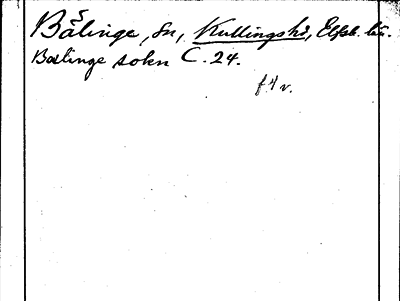 Bälinge, sn, Kullingshd, Elfsb. län.
Bælinge sokn C. 24.
f 4 v.